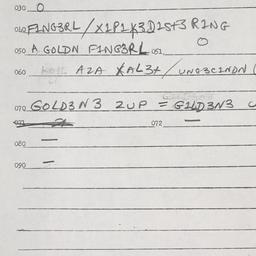 030 O
040 F1NG3RL / X1P1X3D1St3 R1NG
050 A GOLDN F1NG3RL 051 O
060 AZA XAL3t / UNG3C1NDN (
070 GOLD3N3 2UP = G1LD3N3
071 072 —
080 —
090 —